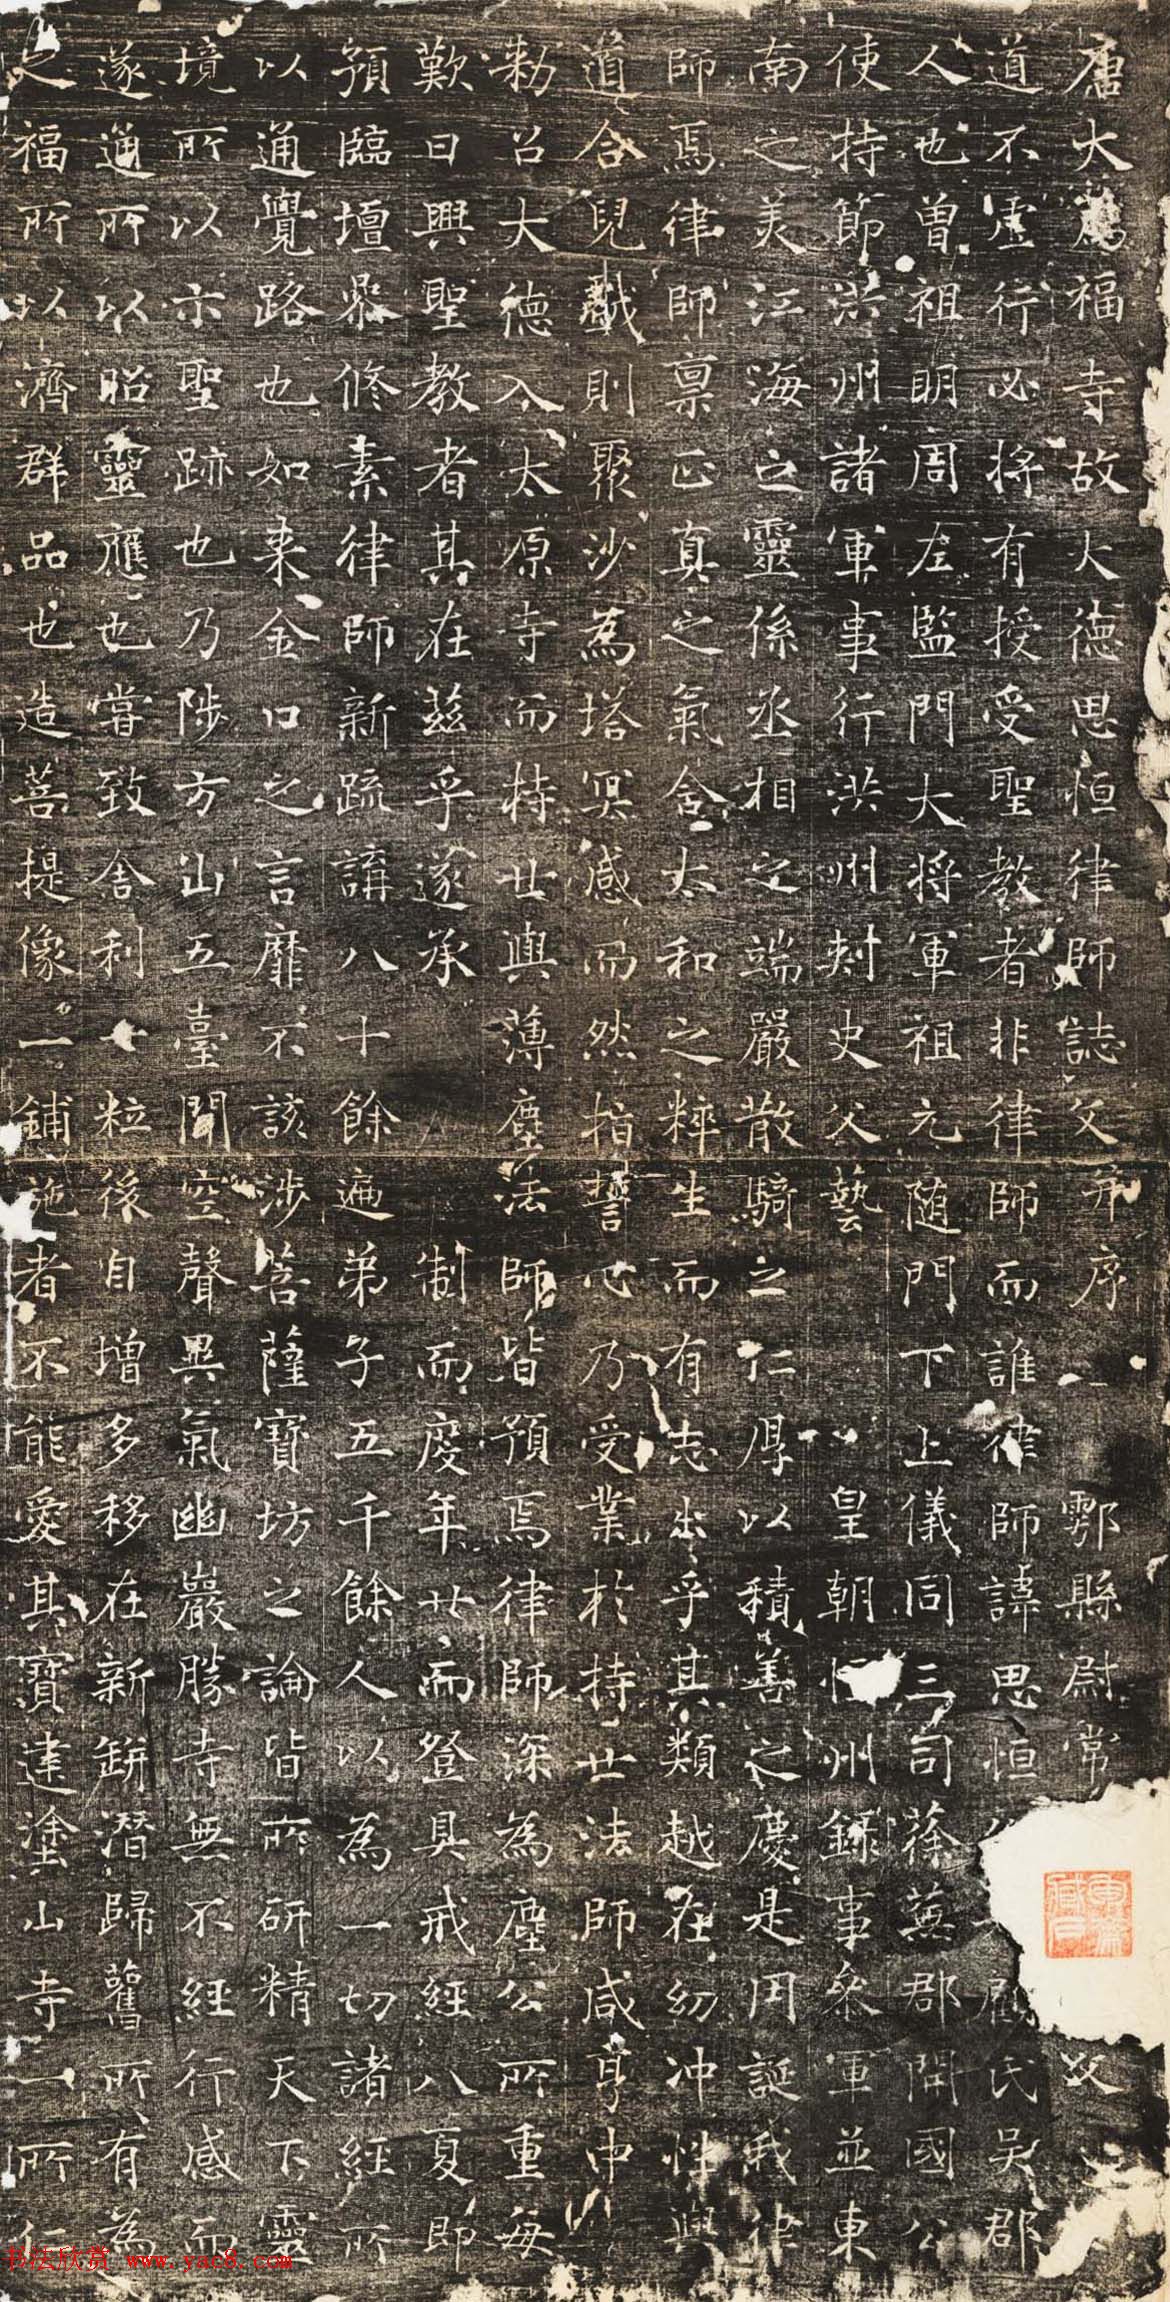 唐大薦福寺故大德思恒律師誌文并序 鄠縣尉常
道不虛行必將有授受聖教者非律師而誰律師諱思恒俗 顧氏吳郡
人也曾祖明周左監門大將軍祖元随門下上儀同三司蓚蕪郡開國公
使持節洪州諸軍事行洪州刺史父藝 皇朝恒州錄事參軍並東
南之美江海之靈係丞相之端嚴散騎之仁厚以積善之慶是用誕我律
師焉律師稟正真之氣含太和之粹生而有志出乎其類越在幼冲性與
道合兒戲則聚沙為塔冥感而然指誓心乃受業於持世法師咸亨中
勑召大德入太原寺而持世與薄塵法師皆預焉律師深為塵公所重每
歎曰興聖教者其在茲乎遂承 制而度年廿而登具戒經八夏即
預臨壇參修素律師新疏講八十餘遍弟子五千餘人以為一切諸經所
以通覺路也如来金口之言靡不該涉菩薩寶坊之論皆所研精天下靈
境所以示聖跡也乃陟方山五臺聞空聲異氣幽巖勝寺無不經行感而
遂通所以昭靈應也嘗致舍利一粒後自增多移在新缾潛歸舊所有為
之福所以濟群品也造菩提像一鋪施者不能愛其寶建塗山寺一所行
书法欣赏 www.yac8.com